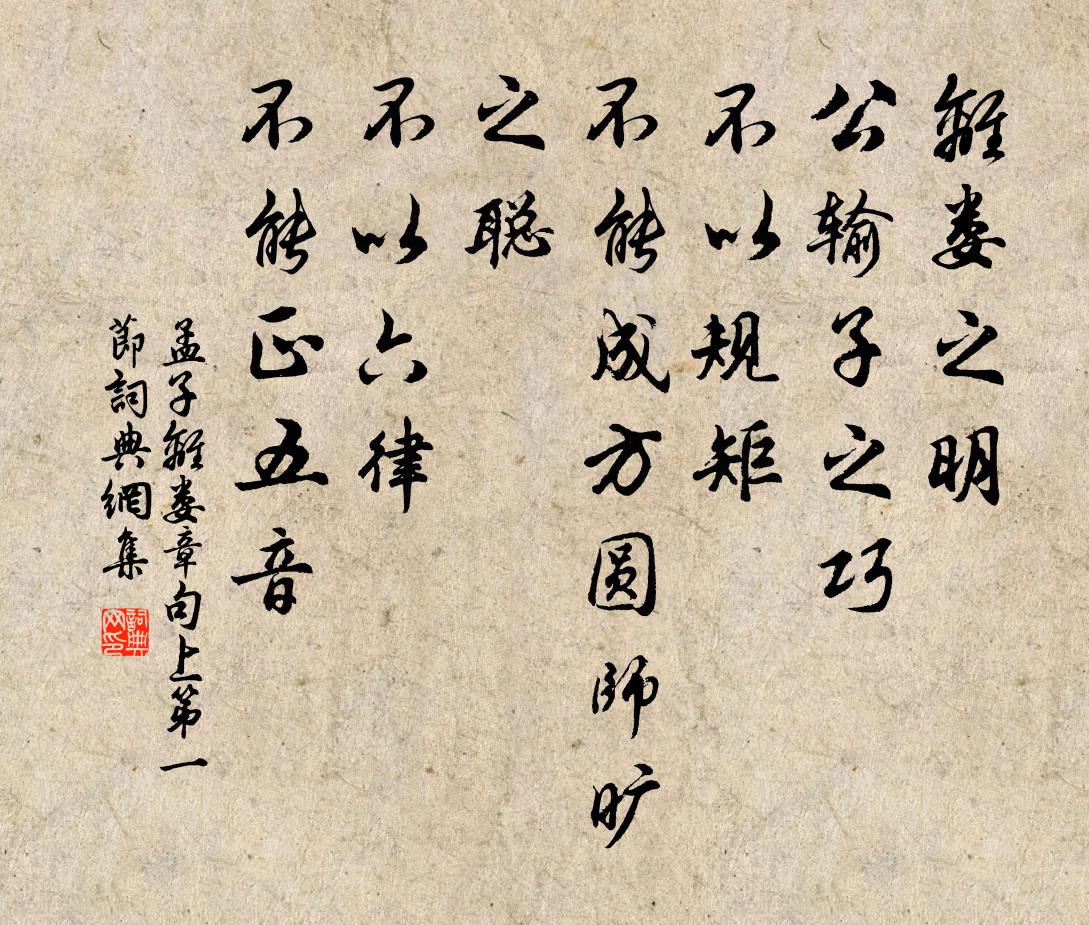 離娄之明
公输子之巧
不以規矩
不能成方圆師旷
之聪
不以六律
不能正五音
孟子離娄章句上第一
節詞典網集
詞典
网印